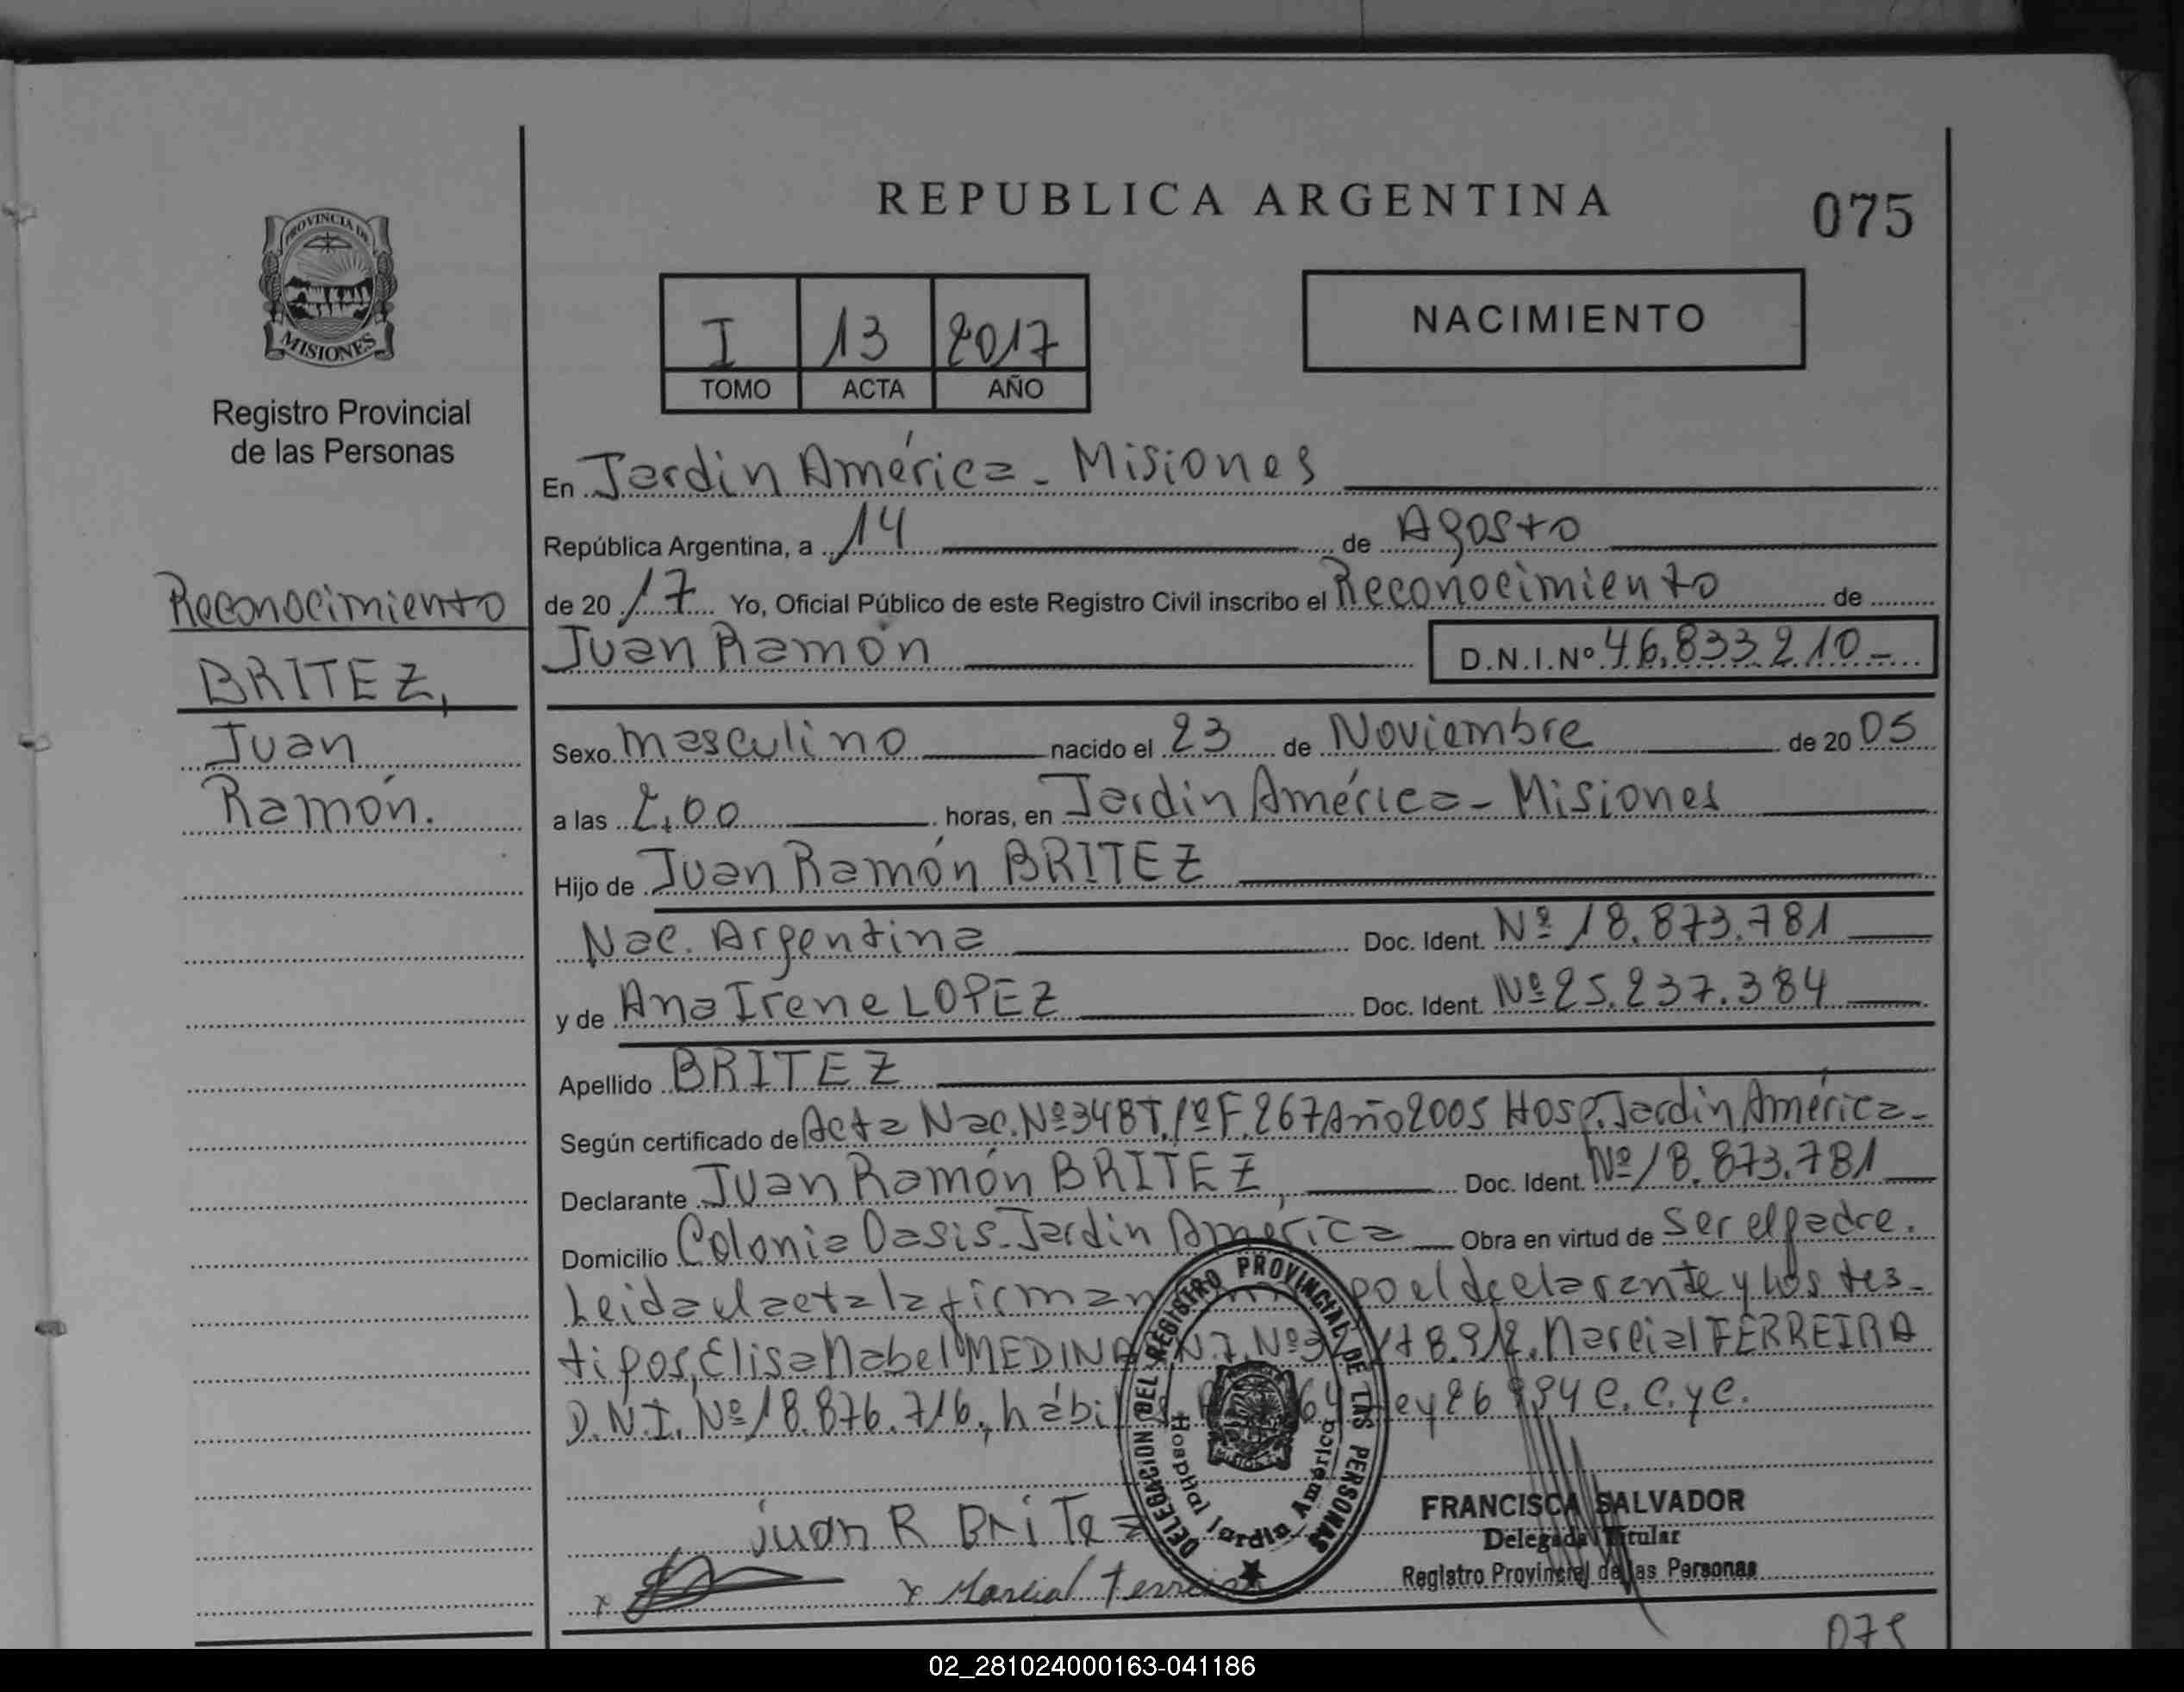 REPUBLICA ARGENTINA
075
PROVINCIA DE
MISIONES
Registro Provincial
de las Personas
I 13 2017
TOMO ACTA AÑO
NACIMIENTO
En Jardin América - Misiones
República Argentina, a 14 de Agosto
de 20 17 Yo, Oficial Público de este Registro Civil inscribo el Reconocimiento de
Juan Ramón D.N.I.Nº 46.833.210-
Reconocimiento
BRITEZ,
Juan
Ramón.
Sexo masculino nacido el 23 de Noviembre de 20 05
a las 2,00 horas, en Jardin América - Misiones
Hijo de Juan Ramón BRITEZ
Nac. Argentina Doc. Ident. Nº 18.873.781
y de Ana Irene LOPEZ Doc. Ident. Nº 25.237.384
Apellido BRITEZ
Según certificado de Acta Nac. Nº 348 T. 1º F. 267 Año 2005 Hosp. Jardin América-
Declarante Juan Ramón BRITEZ, Doc. Ident. Nº 18.873.781
Domicilio Colonia Oasis - Jardin América Obra en virtud de ser el padre.
Leida el acta la firman el declarante y los tes-
tigos, Elisa Mabel MEDINA Marcial FERREIRA
D.N.I. Nº 18.876.716, C.C. y C.
DELEGACION DEL REGISTRO PROVINCIAL DE LAS PERSONAS
Hospital Jardín América
juan R BRiTez
x
x Marcial Ferreira
FRANCISCA SALVADOR
Delegada Titular
Registro Provincial de las Personas
075
02_281024000163-041186